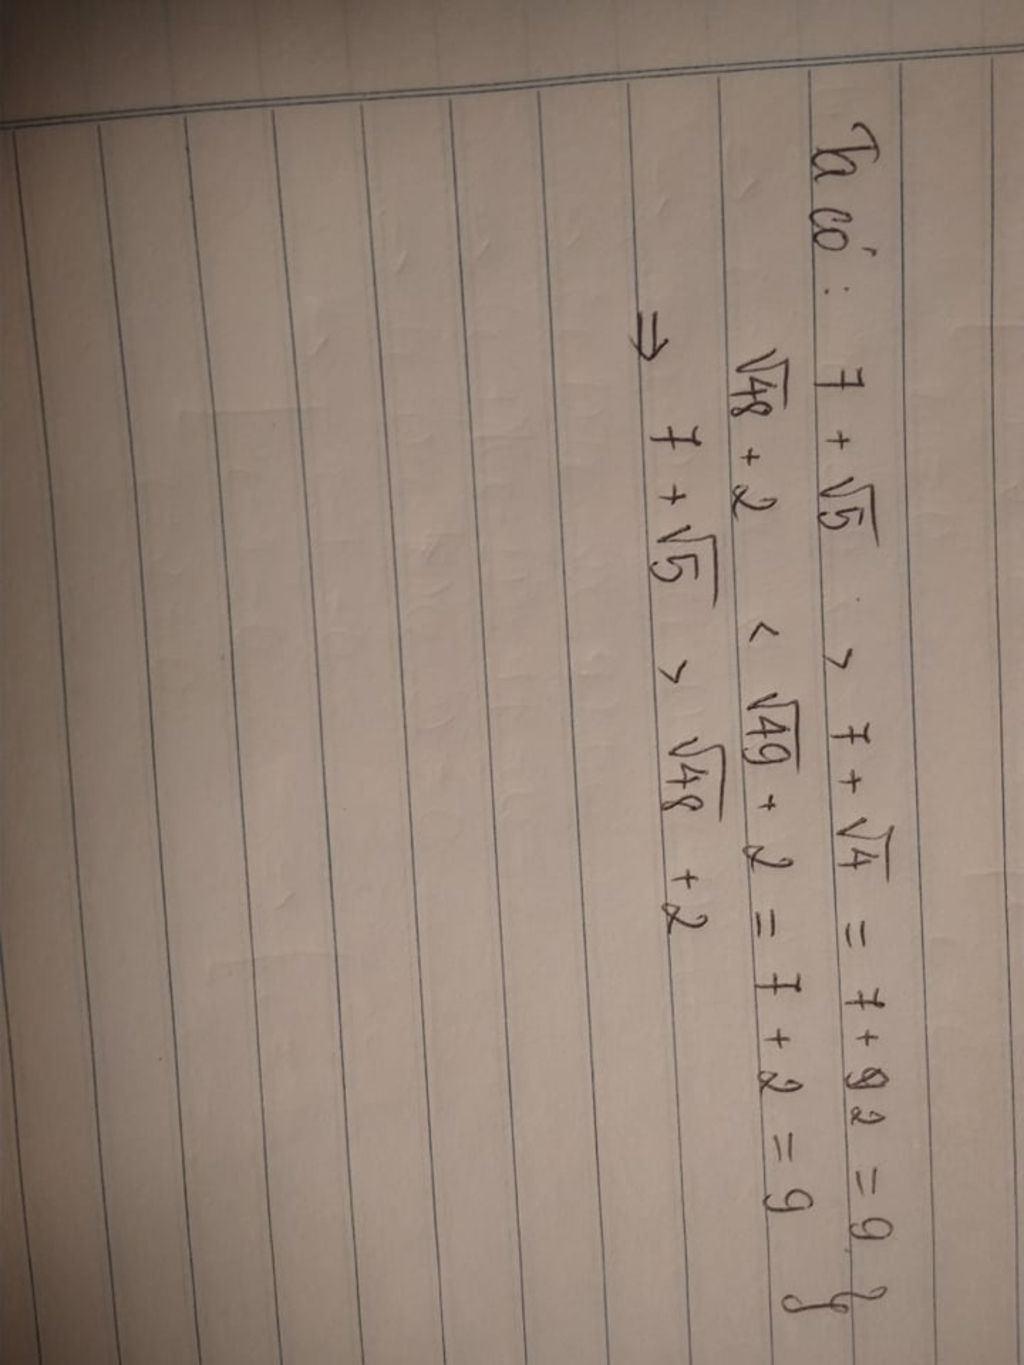 Ta có: 7 + √5 > 7 + √4 = 7 + 2 = 9 }
√48 + 2 < √49 + 2 = 7 + 2 = 9
⇒ 7 + √5 > √48 + 2